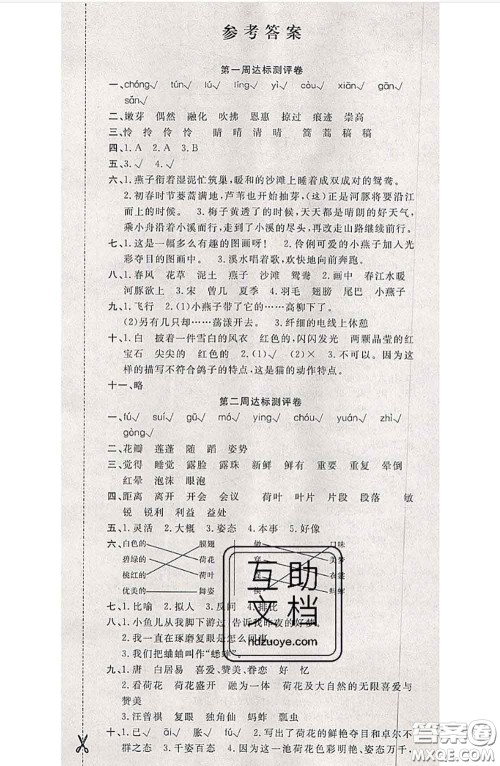 参考答案
第一周达标测评卷
一、chóng√ tún√ lú√ líng√ yì√ còu√ xiān√ gān√
sǎn√
二、嫩芽 偶然 融化 吹拂 恩惠 掠过 痕迹 崇高
三、伶 怜 怜 伶 睛 晴 清 晴 蒿 蒿 稿 稿
四、1.A 2.A 3.B
五、3.√ 4.√
六、1.燕子衔着湿泥忙筑巢，暖和的沙滩上睡着成双成对的鸳鸯。
2.初春时节蒌蒿满地，芦苇也开始抽芽，(这)正是河豚将要沿江
而上的时候。 3.梅子黄透了的时候，天天都是晴朗的好天气，
乘小舟沿着小溪而行，走到了小溪的尽头，再改走山路继续前行。
七、1.这是一幅多么有趣的图画呀！ 2.伶俐可爱的小燕子加入光
彩夺目的图画中。 3.溪水唱着歌，欢快地向前奔跑。
八、1.春风 花草 泥土 燕子 沙滩 鸳鸯 2.画中 春江水暖
河豚欲上 3.宋 曾几 夏季 4.羽毛 翅膀 尾巴 小燕子
九、1.飞行 2.(1)小燕子带了它的……高柳下了。
(2)另有几只却……荡漾开去。 3.纤细的电线上休憩
十、1.白 披着一件雪白的风衣 红色的 闪闪发光 两颗晶莹的红
宝石 尖尖的 红色的 2.(1)√ (2)× 3.不可以。因为这
样的描写不符合鸽子的特点，这是猫的动作特点。
十一、略
第二周达标测评卷
一、fú√ suí√ gǔ√ mó√ yíng√ cháu√ yuán√ zhǐ√
gòng√
二、花瓣 莲蓬 随着 舞蹈 姿势
三、觉得 睡觉 露脸 露珠 新鲜 鲜有 重要 重复 晕倒
红晕 泡沫 眼泡
四、距离 离开 开会 会议 荷叶 叶片 片段 段落 敏
锐 锐利 利益 益处
五、1.灵活 2.大概 3.姿态 4.本事 5.好像
六、白色的 翅膀
碧绿的 荷花
桃红的 荷叶
优美的 舞姿
七、1.比喻 2.拟人 3.反问 4.排比
八、1.小鱼儿从我脚下游过 告诉我昨夜的好梦。
2.我一直在琢磨复眼是怎么回事
3.我们把蛐蛐叫作“蟋蟀”。
九、1.唐 白居易 喜爱、赞美、眷恋 好 忆
2.看荷花 荷花盛开 融为一体 荷花 大自然的无限喜爱与
赞美
3.汪曾祺 复眼 独角仙 蚂蚱 瓢虫
十、1.√ 2.写出了荷花的鲜艳夺目和卓尔不
群之态 3.千姿百态 4.因为这一池荷花色彩明艳、姿态万千，
互助
文档
hdzuoye.com
答案圈
MXQE.COM